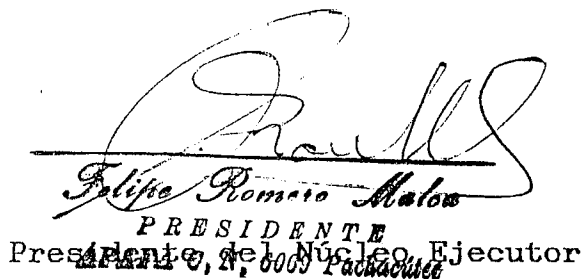 Felipe Romero Malca
PRESIDENTE
Presidente del Núcleo Ejecutor
C. N. 6009 Pachacútec